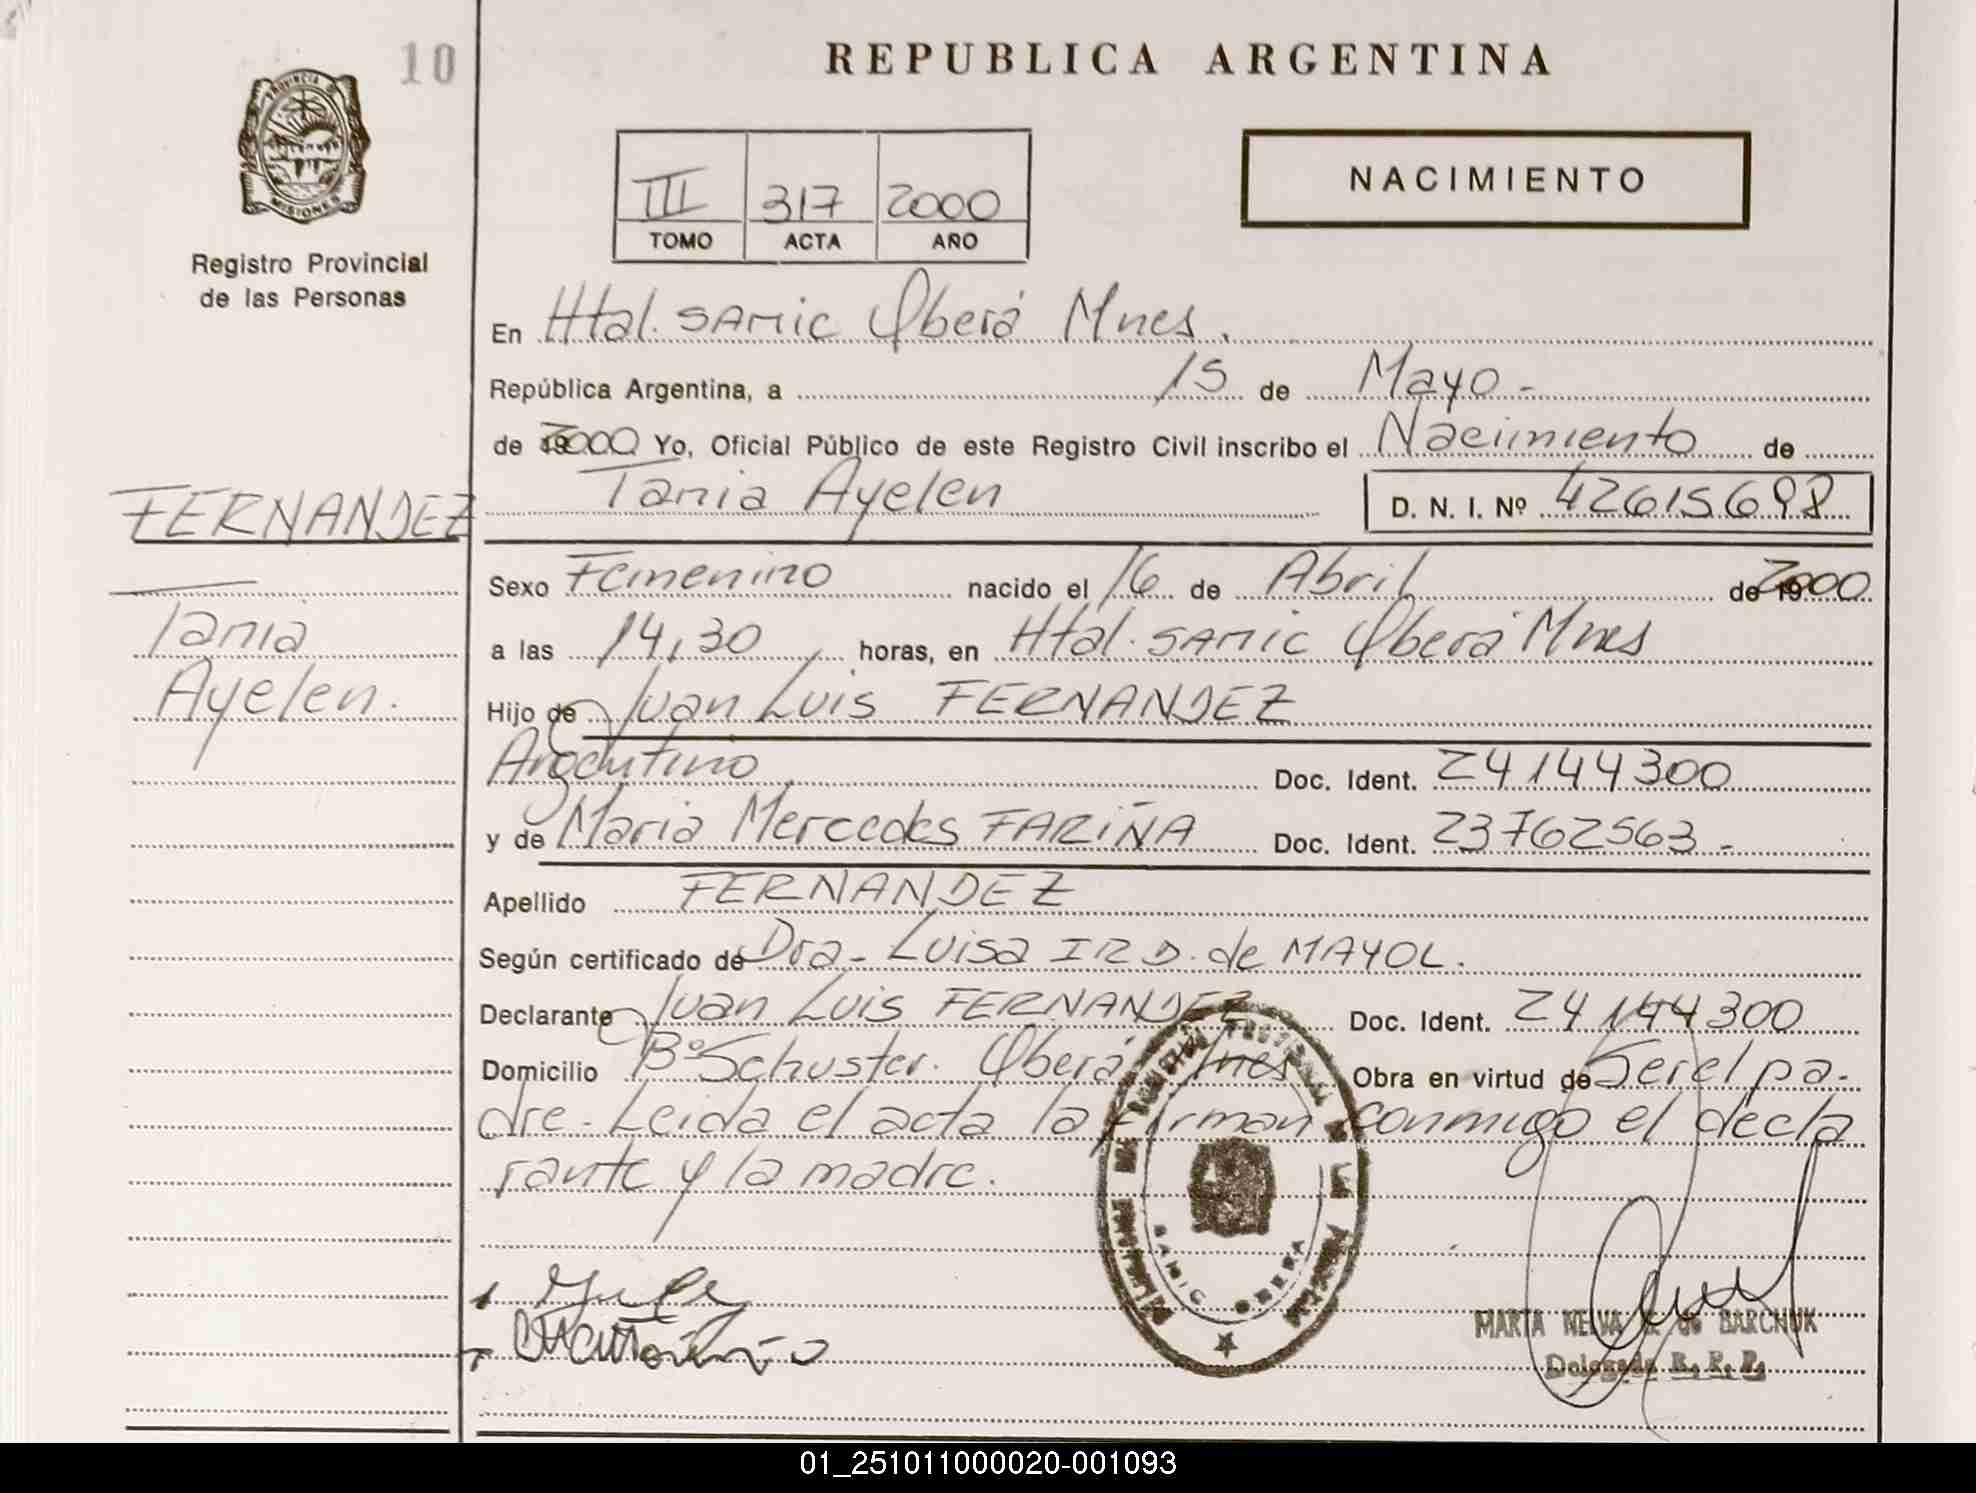 10
REPUBLICA ARGENTINA
PROVINCIA DE
MISIONES
Registro Provincial
de las Personas
III 317 2000
TOMO ACTA AÑO
NACIMIENTO
En Htal. SAMIC Oberá Mnes.
República Argentina, a 15 de Mayo -
de 2000 Yo, Oficial Público de este Registro Civil inscribo el Nacimiento de
Tania Ayelen D. N. I. Nº 42615698
FERNANDEZ
Tania
Ayelen.
Sexo Femenino nacido el 16 de Abril de 2000
a las 14,30 horas, en Htal. SAMIC Oberá Mnes
Hijo de Juan Luis FERNANDEZ
Argentino Doc. Ident. 24144300
y de Maria Mercedes FARIÑA Doc. Ident. 23762563 -
Apellido FERNANDEZ
Según certificado de Dra - Luisa I R D. de MAYOL.
Declarante Juan Luis FERNANDEZ Doc. Ident. 24144300
Domicilio Bº Schuster. Oberá Mnes Obra en virtud de Ser el pa-
dre - Leida el acta la firman conmigo el decla
rante y la madre.
SAMIC OBERA
MARTA NELVA de BARCHUK
Delegada R. P. P.
01_251011000020-001093